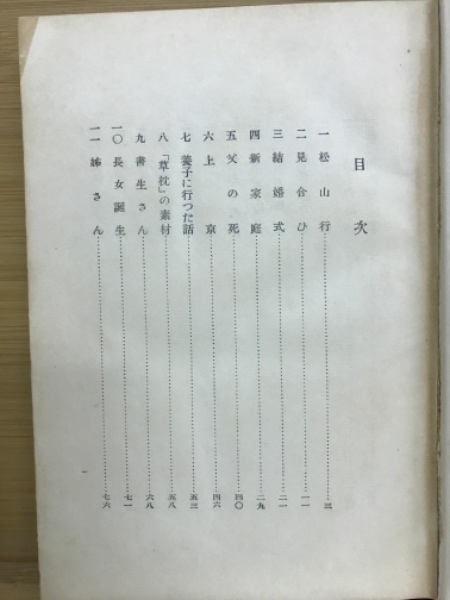 目次
一 松山行 三
二 見合ひ 一一
三 結婚式 二一
四 新家庭 二九
五 父の死 四〇
六 上京 四六
七 養子に行つた話 五三
八 「草枕」の素材 五八
九 書生さん 六八
一〇 長女誕生 七一
一一 姉さん 七六
一